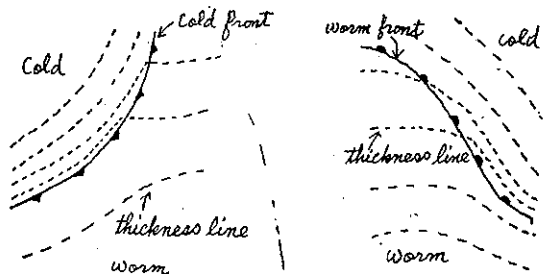 Cold front
Cold
thickness line
worm
worm front
cold
thickness line
worm